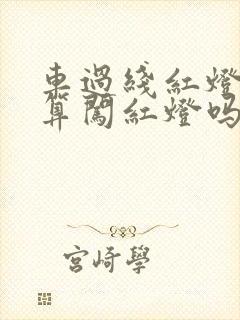 車過綫紅燈
算闖紅燈吗
宮崎學